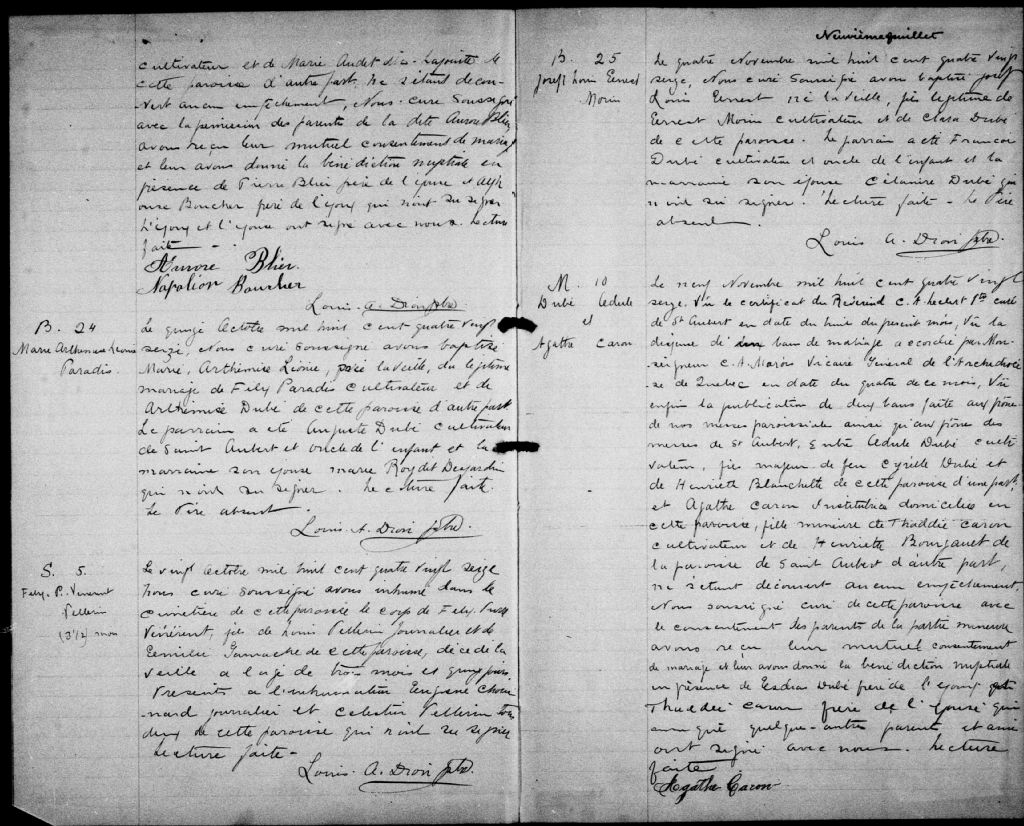 cultivateur et de Marie Audet dit Lapointe de
cette paroisse d'autre part. Ne s'étant decou-
vert aucun empêchement, Nous curé soussigné
avec la permission des parents de la dite Aurore Blier
avons reçu leur mutuel consentement de mariage
et leur avons donné la bénédiction nuptiale en
présence de Pierre Blier père de l'épouse et Alph
onse Boucher frère de l'époux qui n'ont su signer
L'époux et l'épouse ont signé avec nous. Lecture
faite -
Aurore Blier.
Napoléon Boucher
Louis. A. Dion ptre.
B. 24
Marie Arthémise Léonie
Paradis.
Le quinze Octobre mil huit cent quatre vingt
seize, Nous curé soussigné avons baptisé
Marie, Arthémise Léonie, née la veille, du légitime
mariage de Félix Paradis cultivateur et de
Arthémise Dubé de cette paroisse d'autre part.
Le parrain a été Auguste Dubé cultivateur
de Saint Aubert et oncle de l'enfant et la
marraine son épouse marie Roy dit Desjardin
qui n'ont su signer. Lecture faite.
Le Père absent.
Louis. A. Dion ptre.
S. 5.
Félix. P. Venerent
Pellerin
(3½) mois
Le vingt Octobre mil huit cent quatre vingt seize
Nous curé soussigné avons inhumé dans le
cimetière de cette paroisse le corps de Félix
fils de Louis Pellerin journalier et de
Émilie Gamache de cette paroisse, décédé la
veille a l'age de trois mois et quinze jours.
Présents a l'inhumation Eugène Choui
nard journalier et Celestin Pellerin tous
deux de cette paroisse qui n'ont su signer
Lecture faite -
Louis. A. Dion ptre.
Neuvième feuillet
B. 25
Joseph Louis Ernest
Morin
Le quatre Novembre mil huit cent quatre vingt
seize Nous curé soussigné avons baptisé Joseph
Louis Ernest né la veille, fils légitime de
Ernest Morin cultivateur et de Clara Dubé
de cette paroisse. Le parrain a été Francois
Dubé cultivateur et oncle de l'enfant et la
marraine son épouse Célanire Dubé qui
n'ont su signer. Lecture faite - Le Père
absent
Louis A. Dion ptre.
M. 10
Dubé Adule
et
Agathe Caron
Le neuf Novembre mil huit cent quatre vingt
seize. Vu le certificat du Révérend C. A. curé
de St Aubert en date du huit du présent mois, Vu la
dispense d'un bans de mariage accordée par Mon-
seigneur C. A. Marois Vicaire General de l'Archidiocè
se de Quebec en date du quatre de ce mois, Vu
enfin la publication de deux bans faite aux prône
de nos messes paroissiale ainsi qu'aux prônes des
messes de St Aubert, Entre Adule Dubé culti
vateur, fils majeur de feu Cyrille Dubé et
de Henriette Blanchette de cette paroisse d'une part,
et Agathe Caron Institutrice domiciliée en
cette paroisse, fille mineure de Thaddée Caron
cultivateur et de Henriette Bourgault de
la paroisse de Saint Aubert d'autre part,
ne s'étant découvert aucun empêchement,
Nous soussigné curé de cette paroisse avec
le consentement des parents de la partie mineure
avons reçu leur mutuel consentement
de mariage et leur avons donné la bénédiction nuptiale
en présence de Esdras Dubé frère de l'époux et
Thaddée Caron père de l'épouse qui
ainsi que quelque-autre parents et amis
ont signé avec nous. Lecture
faite
Agathe Caron